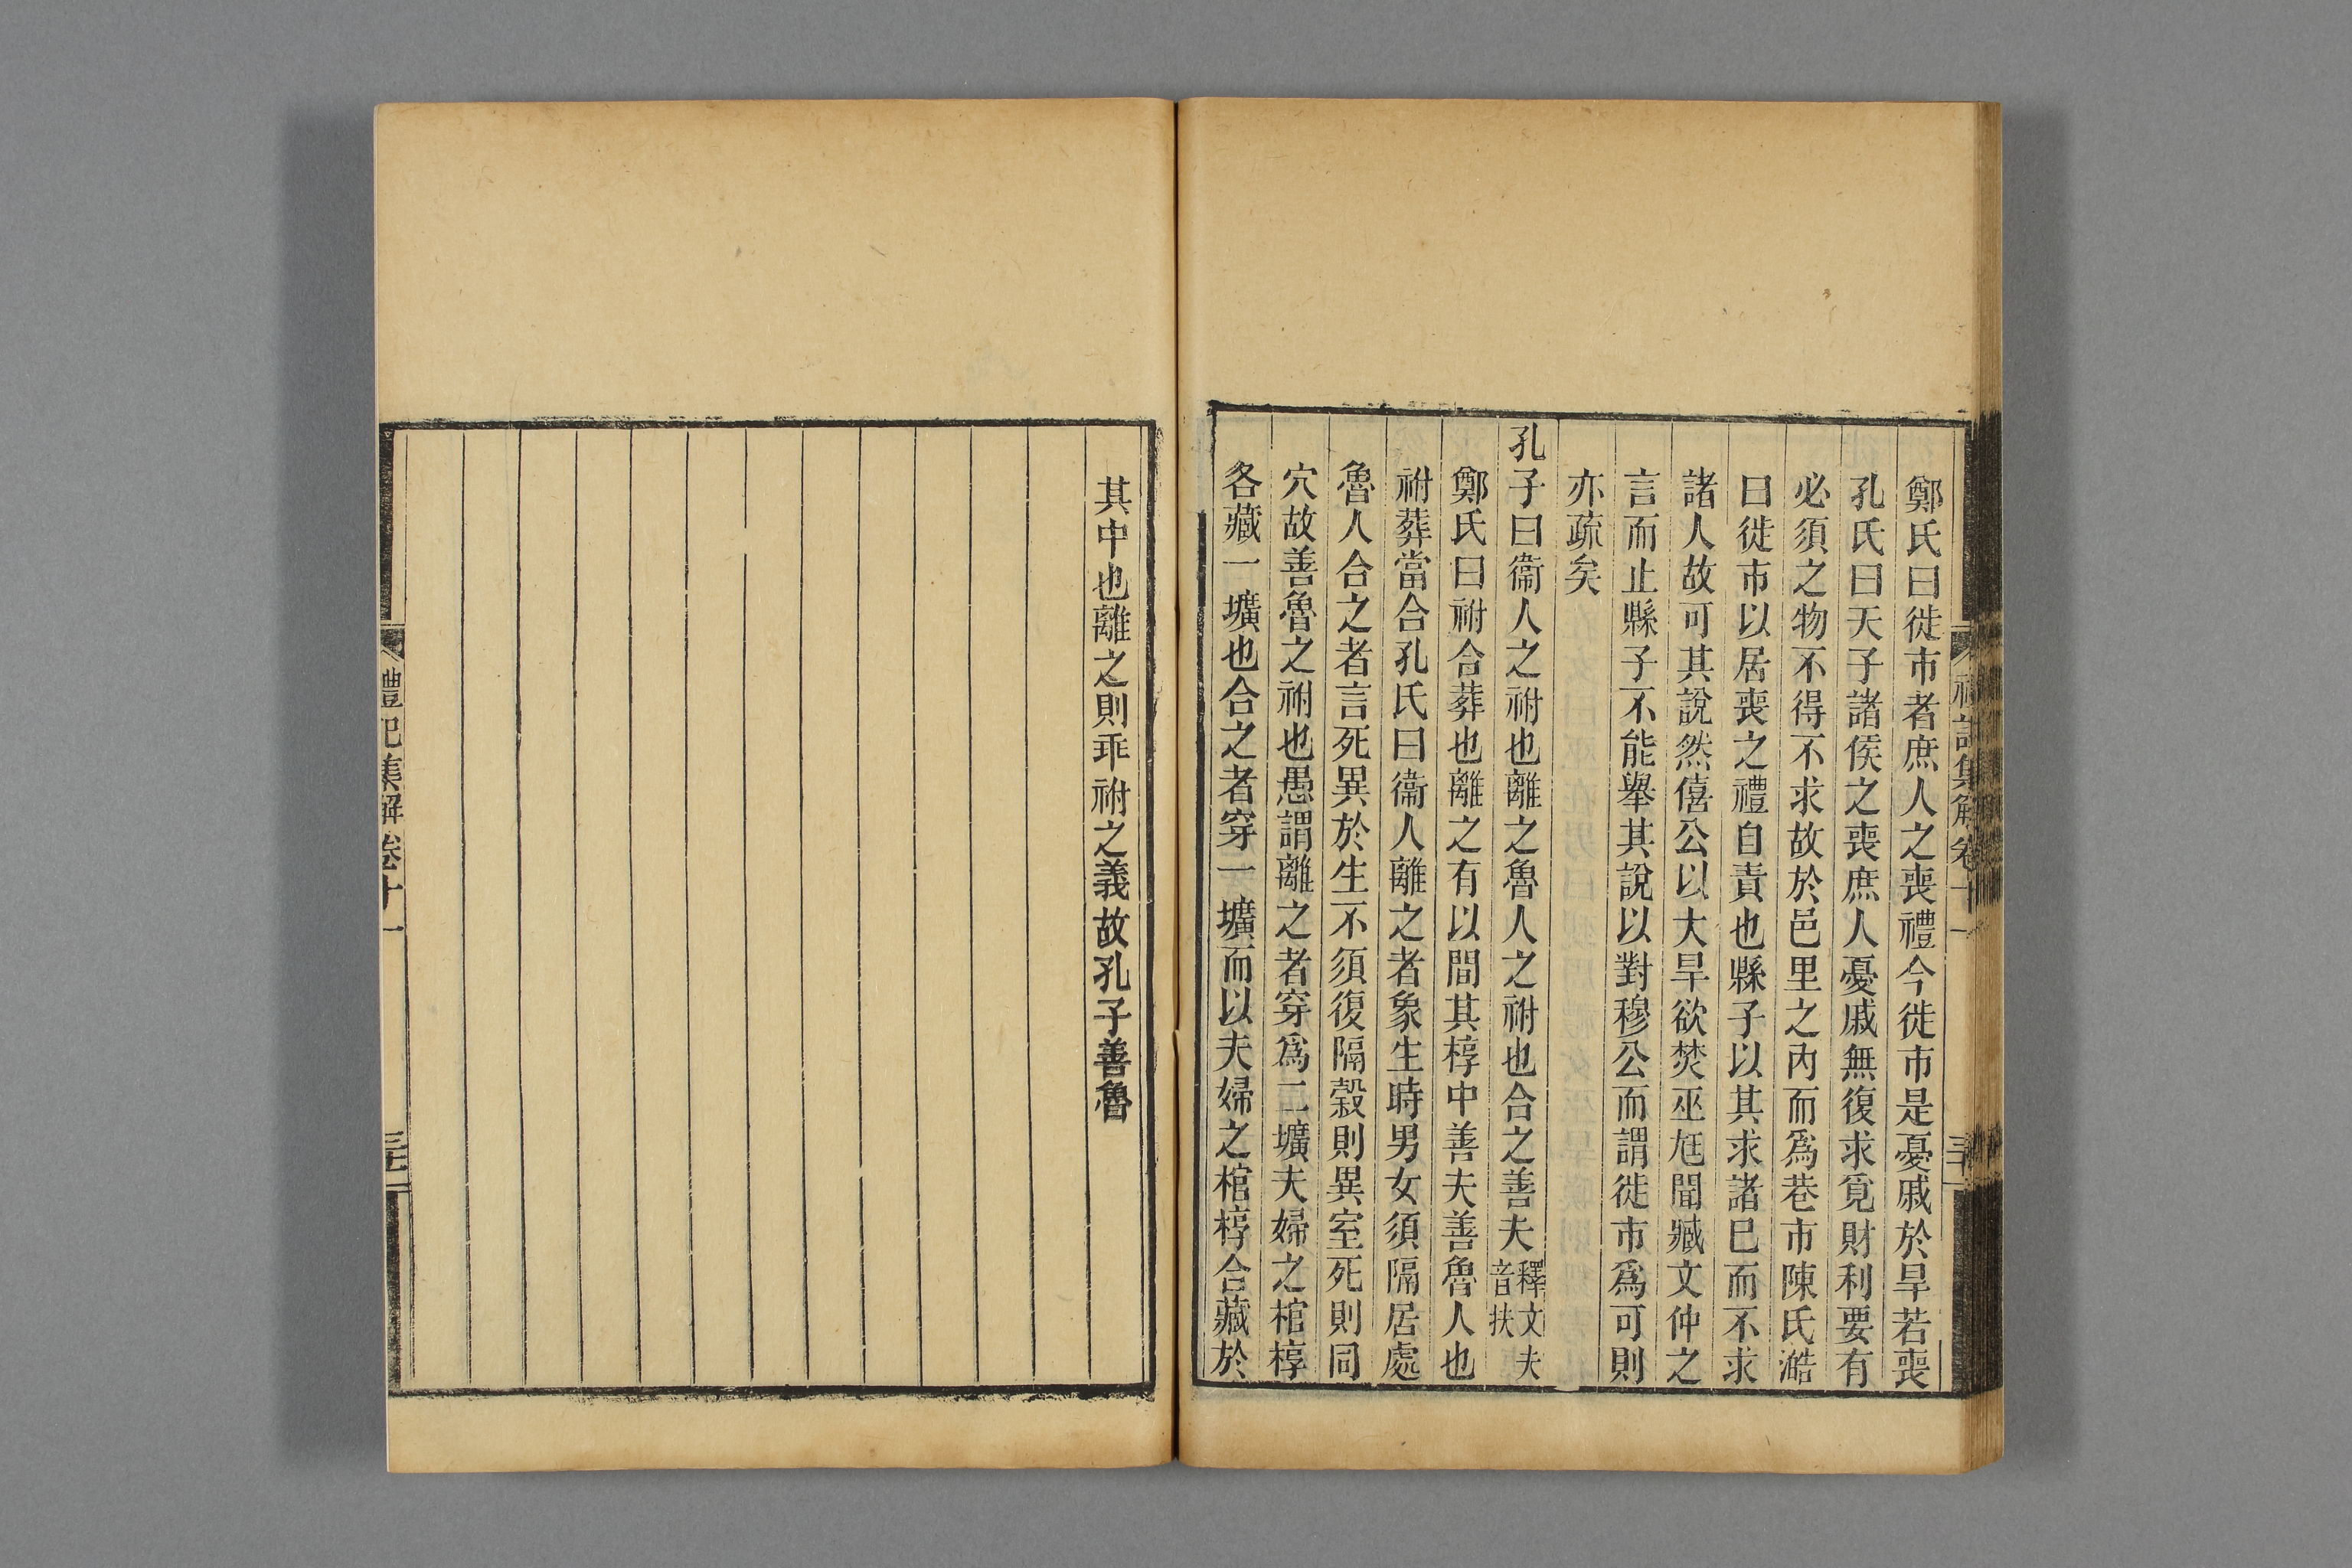 鄭氏曰徙市者庶人之喪禮今徙市是憂戚於旱若喪
孔氏曰天子諸侯之喪庶人憂戚無復求覓財利要有
必須之物不得不求故於邑里之內而爲巷市陳氏澔
曰徙市以居喪之禮自責也縣子以其求諸巳而不求
諸人故可其說然僖公以大旱欲焚巫尫聞臧文仲之
言而止縣子不能舉其說以對穆公而謂徙市爲可則
亦疏矣
孔子曰衞人之祔也離之魯人之祔也合之善夫釋文夫音扶
鄭氏曰祔合葬也離之有以間其椁中善夫善魯人也
祔葬當合孔氏曰衞人離之者象生時男女須隔居處
魯人合之者言死異於生不須復隔穀則異室死則同
穴故善魯之祔也愚謂離之者穿爲二壙夫婦之棺椁
各藏一壙也合之者穿一壙而以夫婦之棺椁合藏於
其中也離之則乖祔之義故孔子善魯
禮記集解卷十一